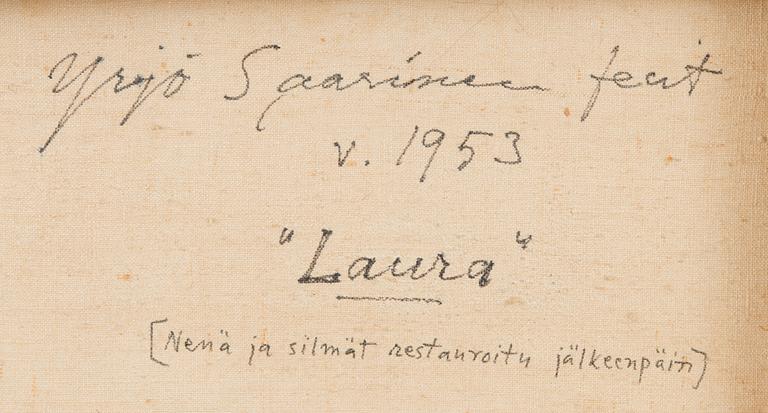 Yrjö Saarinen fecit
v. 1953
"Laura"
[Nenä ja silmät restauroitu jälkeenpäin]